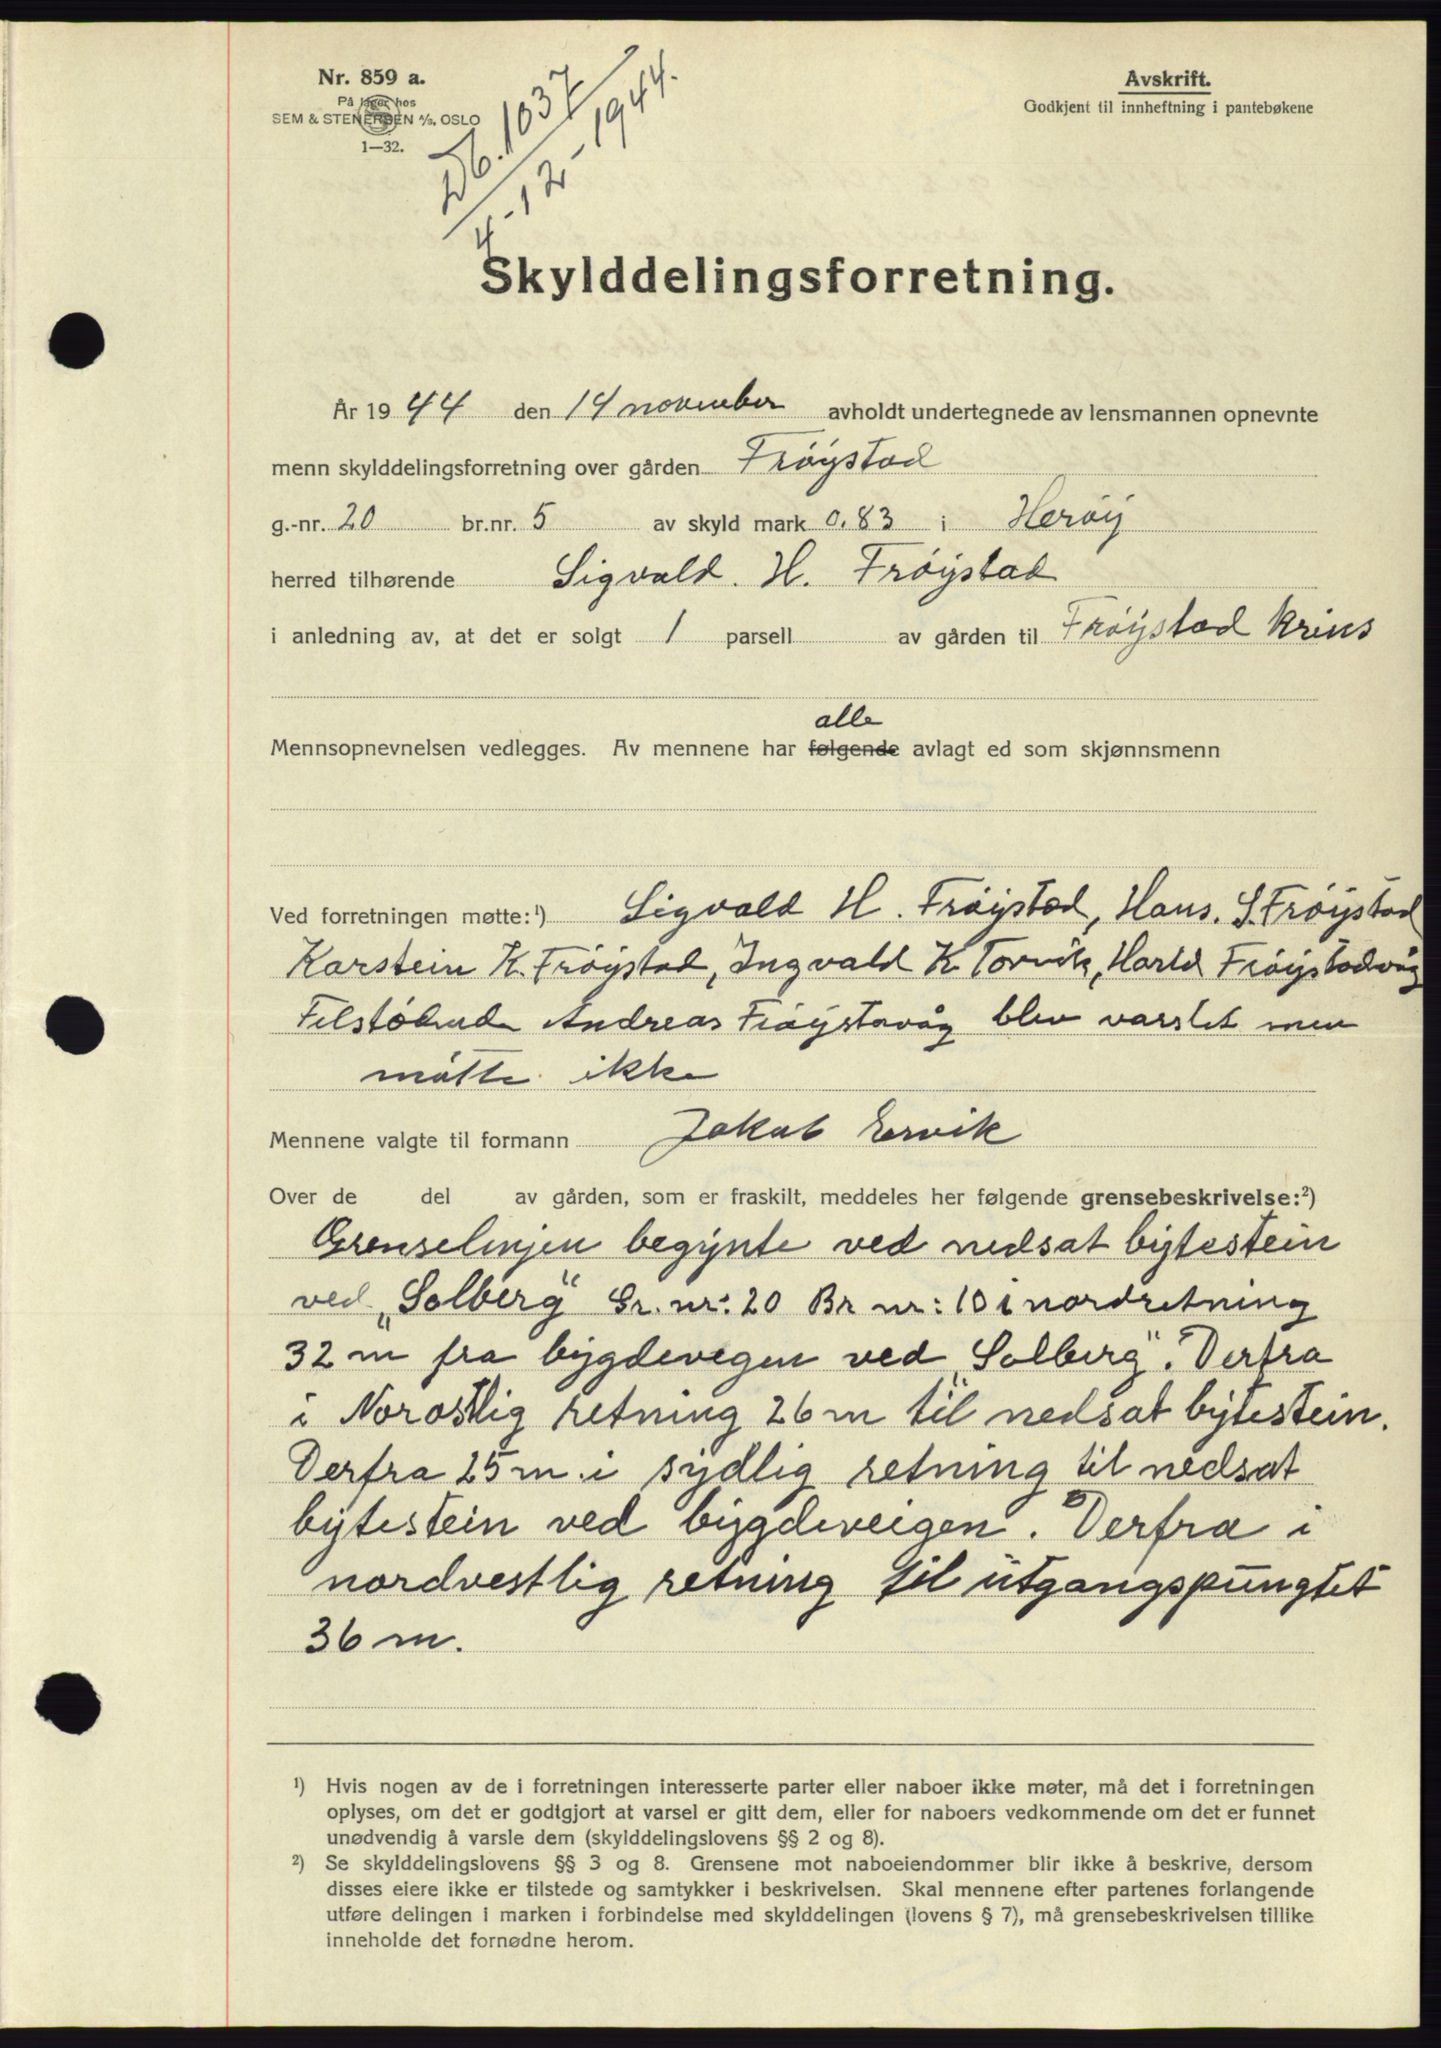 Nr. 859 a.
På lager hos
SEM & STENERSEN A/S, OSLO
1—32.
Db. 1037
4-12-1944.
Avskrift.
Godkjent til innheftning i pantebøkene
Skylddelingsforretning.
År 1944 den 14 november avholdt undertegnede av lensmannen opnevnte
menn skylddelingsforretning over gården Frøystad
g.-nr. 20 br.nr. 5 av skyld mark 0.83 i Herøy
herred tilhørende Sigvald. H. Frøystad
i anledning av, at det er solgt 1 parsell av gården til Frøystad krins
alle
Mennsopnevnelsen vedlegges. Av mennene har følgende avlagt ed som skjønnsmenn
Ved forretningen møtte:¹) Sigvald H. Frøystad, Hans. S. Frøystad
Karstein K. Frøystad, Ingvald K Torvik, Harld Frøystadvåg
Andreas Frøystavåg blev varslet men
møtte ikke
Mennene valgte til formann Jakob Ervik
Over de del av gården, som er fraskilt, meddeles her følgende grensebeskrivelse:²)
Grenselinjen begynte ved nedsat bytestein
ved „Solberg" Gr. nr: 20 Br nr: 10 i nordretning
32 m fra bygdevegen ved „Solberg". Derfra
i Norostlig retning 26 m til nedsat bytestein.
Derfra 25 m. i sydlig retning til nedsat
bytestein ved bygdeveigen. Derfra i
nordvestlig retning til utgangspungtet
36 m.
¹) Hvis nogen av de i forretningen interesserte parter eller naboer ikke møter, må det i forretningen
oplyses, om det er godtgjort at varsel er gitt dem, eller for naboers vedkommende om det er funnet
unødvendig å varsle dem (skylddelingslovens §§ 2 og 8).
²) Se skylddelingslovens §§ 3 og 8. Grensene mot naboeiendommer blir ikke å beskrive, dersom
disses eiere ikke er tilstede og samtykker i beskrivelsen. Skal mennene efter partenes forlangende
utføre delingen i marken i forbindelse med skylddelingen (lovens § 7), må grensebeskrivelsen tillike
inneholde det fornødne herom.